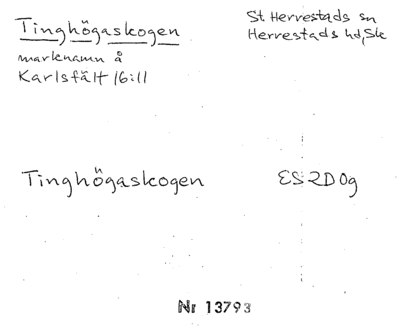 Tinghögaskogen
marknamn å
Karlsfält 16:11
St. Herrestads sn
Herrestads hd, Sk
Tinghögaskogen
ES 2D0g
Nr 13793